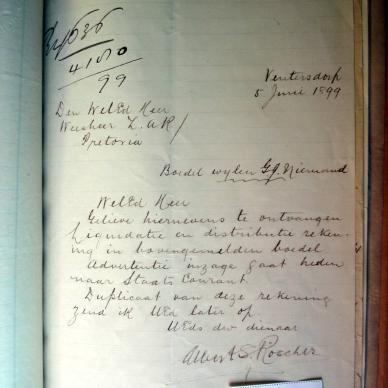 4180
99
Ventersdorp
5 Juni 1899
Den WelEd Heer
Weesheer Z.A.R/
Pretoria
Boedel wylen G J Niemand
WelEd Heer
Gelieve hiernevens te ontvangen
Liquidatie en distributie reken-
ing in bovengemelden boedel
Advertentie inzage gaat heden
naar Staats Courant.
Duplicaat van deze rekening
zend ik UEd later op.
UEds dw dienaar
Albert S. Roscher